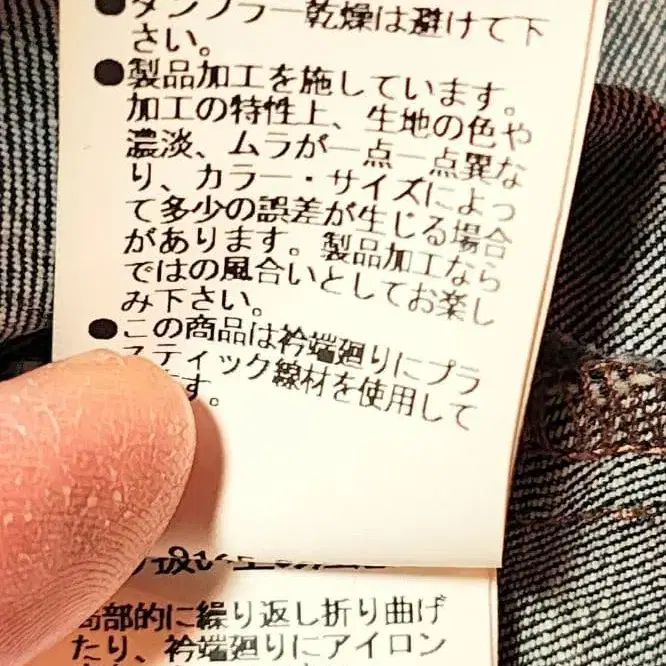 ●タンブラー乾燥は避けて下
さい。
●製品加工を施しています。
加工の特性上、生地の色や
濃淡、ムラが一点一点異な
り、カラー・サイズによっ
て多少の誤差が生じる場合
があります。製品加工なら
ではの風合いとしてお楽し
み下さい。
●この商品は衿端廻りにプラ
スティック線材を使用して
す。
部的に繰り返し折り曲げ
たり、衿端廻りにアイロン